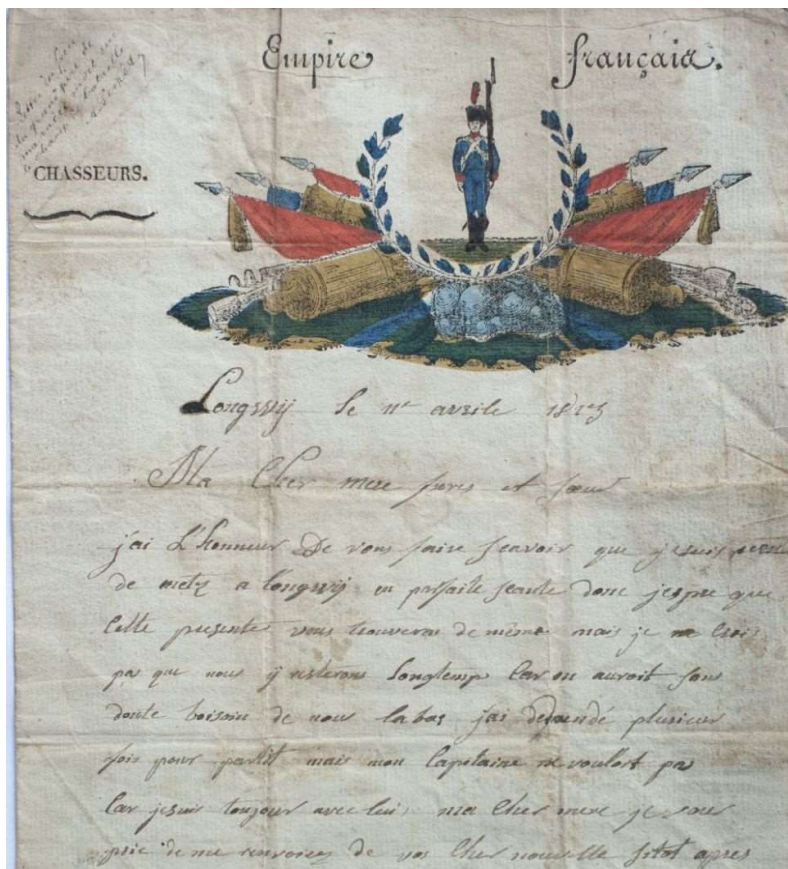 Empire français.
Lettre du frère
du grand père de
ma mère mort sur
le champ bataille
CHASSEURS.
Longwij le 11e avrile 1813
Ma Cher mere freres et sœur
j'ai L'honneur De vous faire scavoir que je suis venu
de metz a longwij en parfaite seante donc jespre que
Cette presente vous trouveras de même mais je ne Crois
pas que nous ij resterons Longtemp Car on auroit sans
doute boisoin de nous labas j'ai demandé plusieur
fois pour partit mais mon Capitaine ne vouloit pas
Car jesuis toujour avec lui ma Cher mere je vous
prie de me renvoiez de vos Cher nouvelle sitot apres